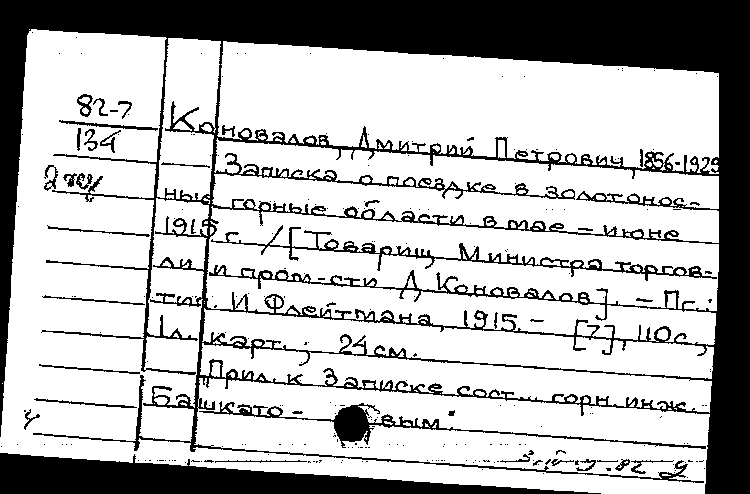 82-7
134
Коновалов, Дмитрий Петрович, 1856-1929
Записка о поездке в золотонос-
ные горные области в мае - июне
1915 г. / [Товарищ Министра торгов-
ли и пром-сти Д. Коновалов]. - Пг.:
тип. И. Флейтмана, 1915. - [7], 110 с.,
1 л. карт.; 24 см.
Прил. к Записке сост... горн. инж.
Башкато- вым: